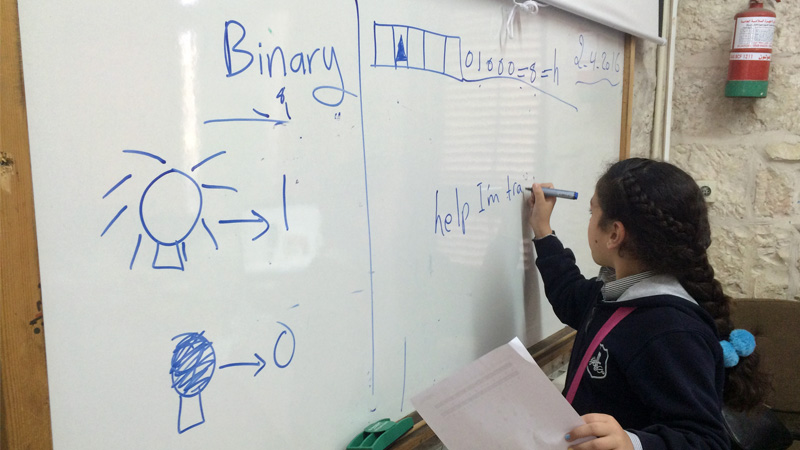 Binary
01000=8=h
2-4-2016
1
help I'm tra
0